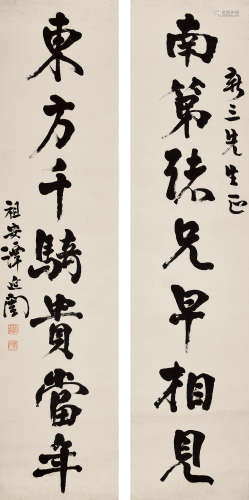 南第諸兄早相見
三先生正
東方千騎貴當年
祖安譚延闓